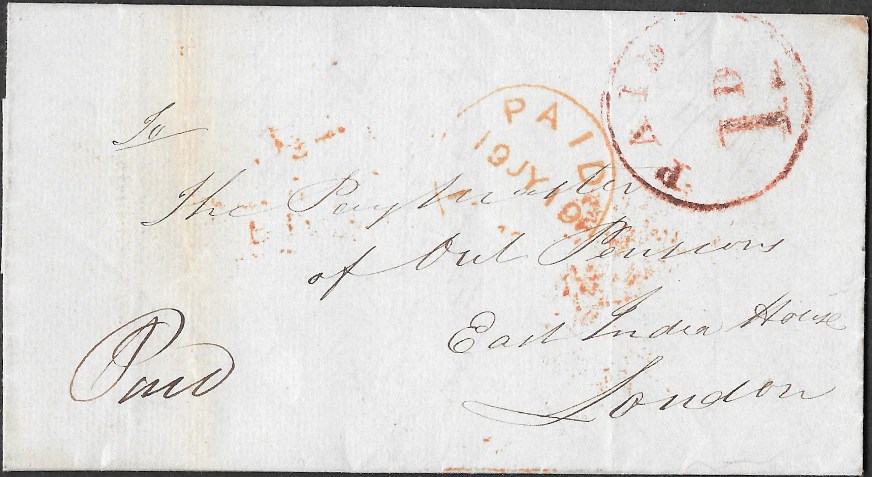 PAID
1d
PAID
19 JY 19
To
The Paymaster
of Out Pensions
East India House
London
Paid